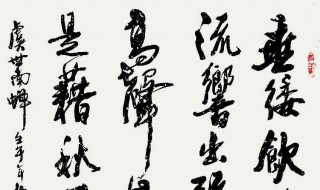 垂緌飲
流響出
高聲
是藉秋
虞世南蝉